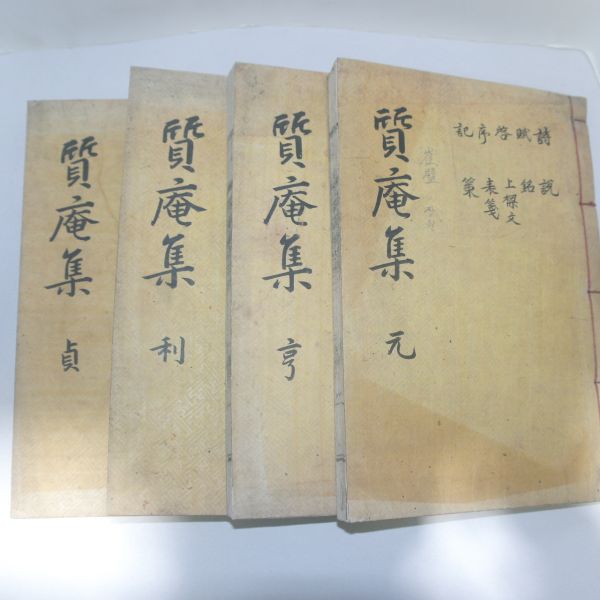 詩 賦 啓 序 記
說 銘 上樑文 表箋 策
崔璧
質庵集 元
質庵集 亨
質庵集 利
質庵集 貞